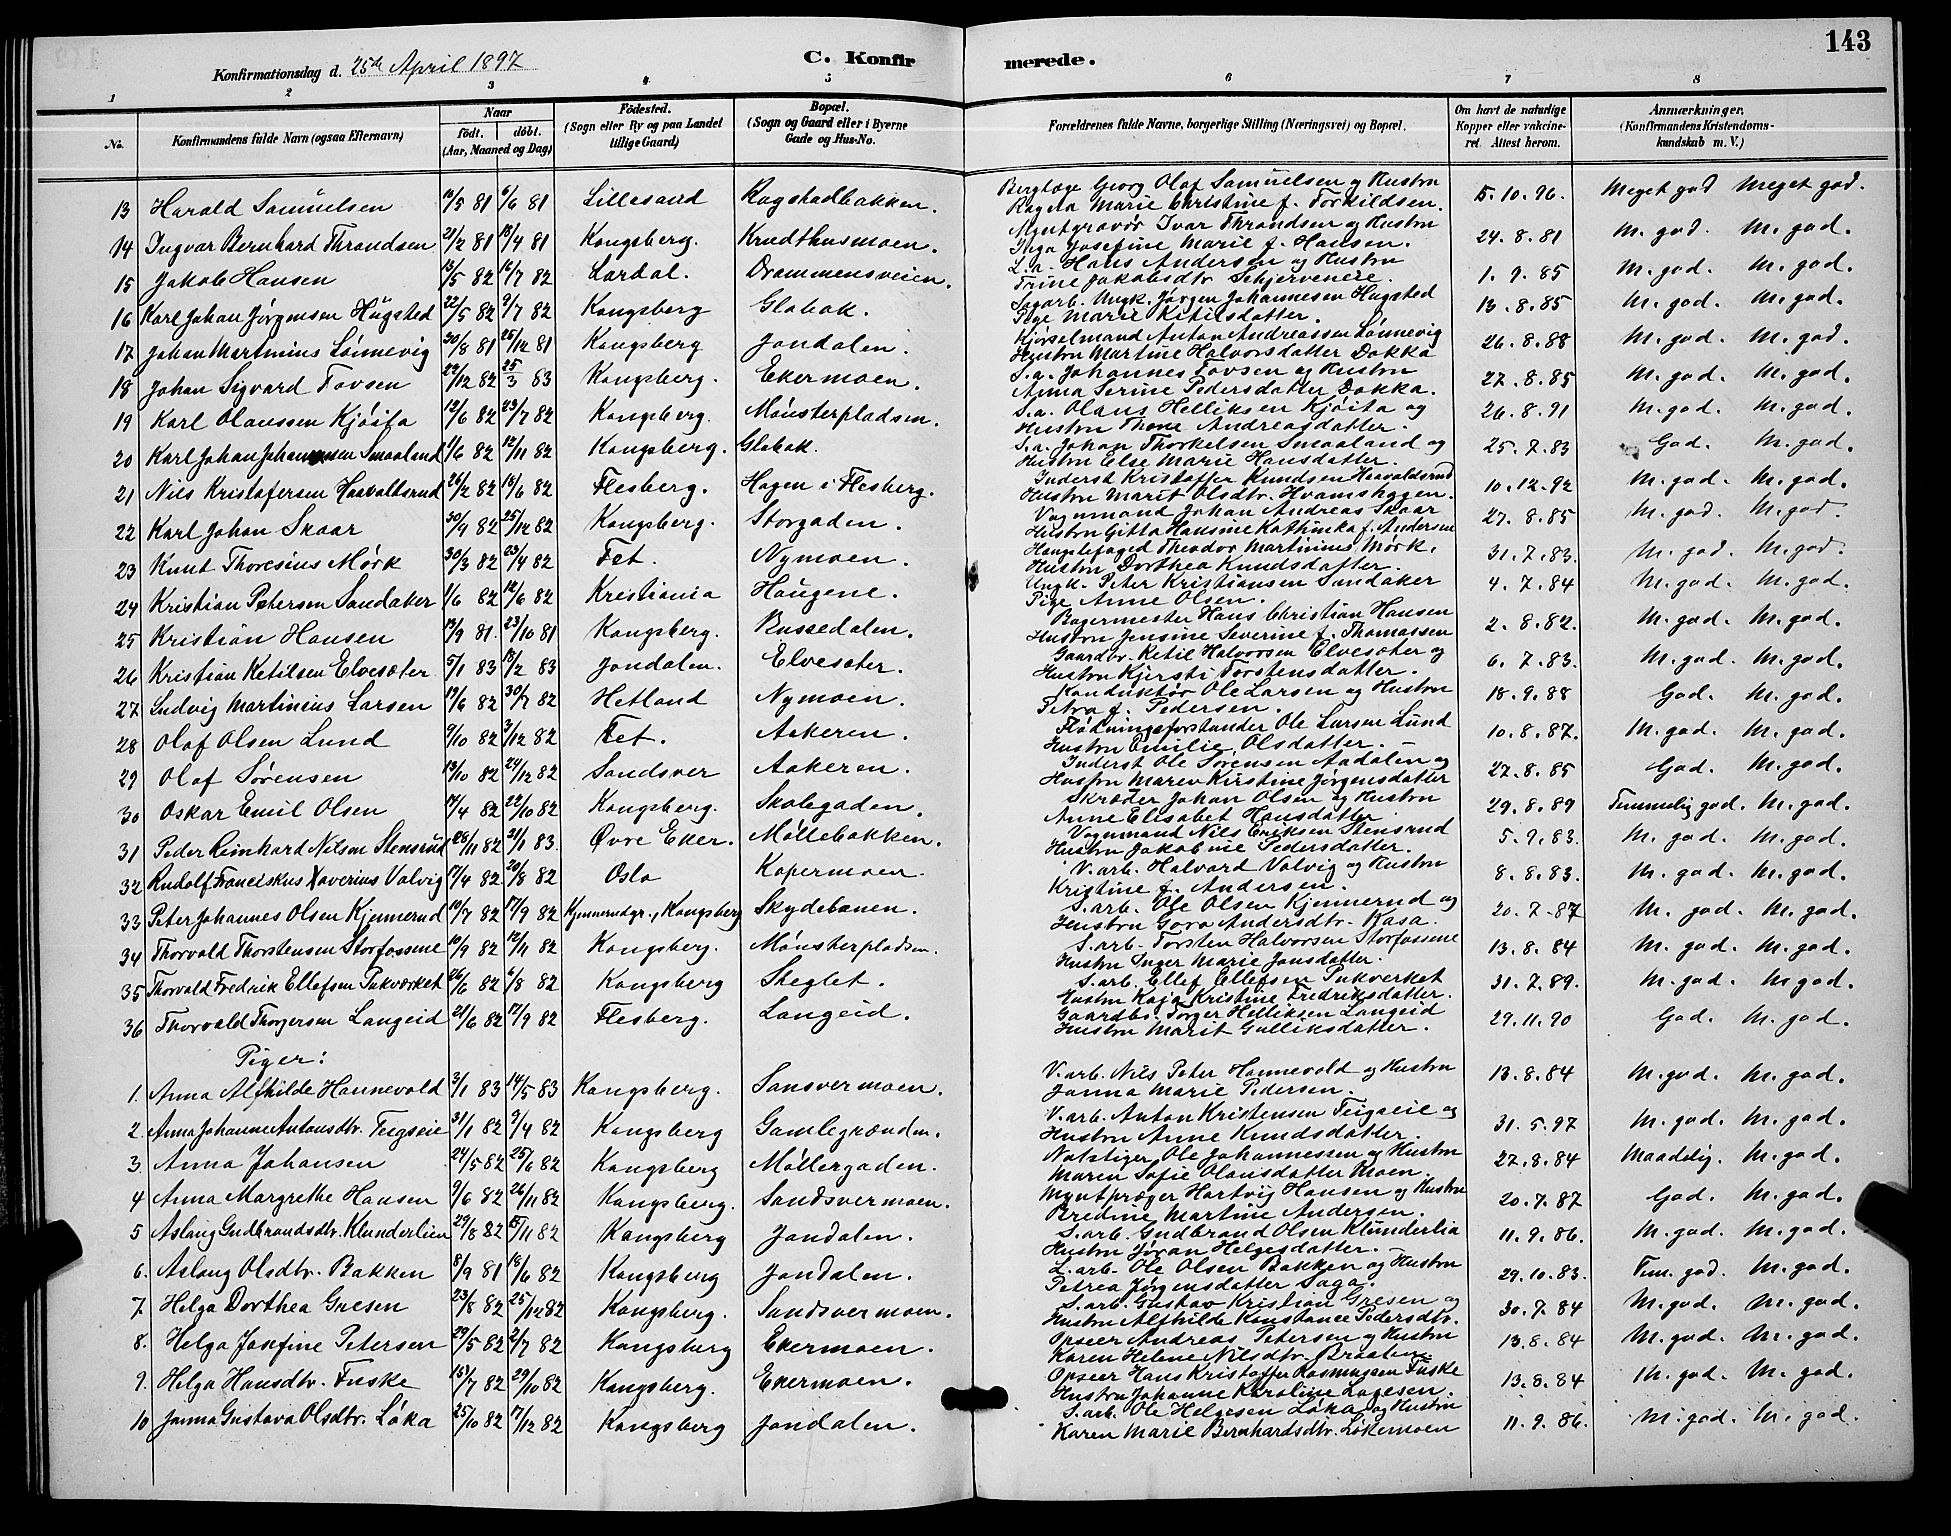 143
Konfirmationsdag d. 25de April 1897
C. Konfirmerede.
1 2 3 4 5 6 7 8
No. Konfirmandens fulde Navn (ogsaa Efternavn) Naar født. døbt. (Aar, Maaned og Dag) Fødested. (Sogn eller By og paa Landet tillige Gaard) Bopæl. (Sogn og Gaard eller i Byerne Gade og Hus-No. Forældrenes fulde Navne, borgerlige Stilling (Næringsvei) og Bopæl. Om havt de naturlige Kopper eller vakcineret. Attest herom. Anmærkninger, (Konfirmandens Kristendomskundskab m. V.)
13 Harald Samuelsen /5 81 6/6 81 Lillesand Ragstadbakken. Bergtøge Georg Olaf Samuelsen og Hustru Ragna Marie Christine f. Torkildsen. 5.10.96. Meget god Meget god.
14 Ingvar Bernhard Thrandsen 21/2 81 18/4 81 Kongsberg. Krudthusmoen. Myntgravør Ivar Thrandsen og Hustru Inga Josefine Marie f. Hansen. 24.8.81 M. god. M. god.
15 Jakob Hansen 13/5 82 16/7 82 Lardal. Drammensveien. L.a. Hans Andersen og Hustru Trine Jakobsdtr. Skjervenere. 1.9.85 M. god. M. god.
16 Karl Johan Jørgensen Hugsted 22/5 82 9/7 82 Kongsberg Glabak. Sagarb. Ungk. Jørgen Johannesen Hugsted Pige Marie Kitilsdatter. 13.8.85 M. god. M. god.
17 Johan Martinius Lønnevig 30/8 81 26/12 81 Kongsberg Jondalen. Kjørselmand Anton Andreassen Lønnevig Hustru Martine Halvorsdatter Dokka 26.8.88 M. god. M. god.
18 Johan Sigvard Tovsen 22/12 82 25/3 83 Kongsberg. Ekermoen. S.a. Johannes Tovsen og Hustru Anna Serine Pedersdatter Dokka. 27.8.85 M. god. M. god.
19 Karl Olaussen Kjøita 12/6 82 23/7 82 Kongsberg. Mønsterpladsen. S.a. Olaus Helliksen Kjøita og Hustru Thone Andreasdatter. 26.8.91 M. god. M. god.
20 Karl Johan Johannesen Smaaland 1/6 82 12/11 82 Kongsberg. Glabak. S.a. Johan Thorkelsen Smaaland og Hustru Else Marie Hansdatter. 25.7.83 God. M. god.
21 Nils Kristofersen Haavaldsrud 26/2 82 18/6 82 Flesberg. Hagen i Flesberg. Inderst Kristoffer Knudsen Haavaldsrud Hustru Marit Olsdtr. Hvamshagen. 10.12.92 M. god. M. god.
22 Karl Johan Skaar 30/9 82 25/12 82 Kongsberg. Storgaden. Vognmand Johan Andreas Skaar Hustru Gitta Hansine Kathinka f. Andersen 27.8.85 M. god. M. god.
23 Knut Thoresius Mørk 30/3 82 23/4 82 Fet. Nymoen. Theodor Martinius Mørk. Hustru Dorthea Knudsdatter. 31.7.83. M. god. M. god.
24 Kristian Petersen Sandaker 1/6 82 12/6 82 Kristiania Haugene. Ungk. Peter Kristiansen Sandaker Pige Anne Olsen. 4.7.84 M. god. M. god.
25 Kristian Hansen 13/9 81. 23/10 81 Kongsberg. Russedalen. Bagermester Hans Christian Hansen Hustru Jensine Severine f. Thomassen 2.8.82. M. god. M. god.
26 Kristian Ketilsen Elvesæter 5/1 83 18/2 83 Jondalen. Elvesæter. Gaardbr. Ketil Halvorsen Elvesæter og Hustru Kjersti Torstensdatter. 6.7.83. M. god. M. god.
27 Ludvig Martinius Larsen 19/6 82 30/7 82 Hetland Nymoen. Konduktør Ole Larsen og Hustru Petra f. Pedersen. 18.9.88 God. M. god.
28 Olaf Olsen Lund 9/10 82 3/12 82 Fet. Aakeren. Fløtningsforstander Ole Larsen Lund Hustru Emilie Olsdatter. 10.8.87. M. god. M. god.
29 Olaf Sørensen 13/10 82 24/12 82 Sandsver Aakeren. Inderst Ole Sørensen Aadalen og Hustru Maren Kirstine Jørgensdatter 27.8.85 God. M. god.
30 Oskar Emil Olsen 17/4 82 22/10 82 Kongsberg. Skolegaden. Skræder Johan Olsen og Hustru Anne Elisabet Hansdatter 29.8.89 Temmelig god. M. god.
31 Peder Reinhard Nilsen Stensrud 28/11 82 21/1 83. Øvre Eker. Møllebakken. Vognmand Nils Eriksen Stensrud Hustru Jakobine Pedersdatter. 5.9.83. M. god. M. god.
32 Rudolf Franciskus Xaverius Valvig 17/4 82 20/8 82 Oslo Kapermoen. V. arb. Halvard Valvig og Hustru Kristine f. Andersen. 8.8.83. M. god. M. god.
33 Peter Johannes Olsen Kjennerud 10/7 82 17/9 82 Kjennerudgr., Kongsberg Skydebanen. S. arb. Ole Olsen Kjennerud og Hustru Gora Andersdtr. Kasa. 20.7.87 M. god. M. god.
34 Thorvald Thorstensen Storfossene 10/9 82 12/11 82 Kongsberg. Mønsterpladsen. S. arb. Torsten Halvorsen Storfossene Hustru Inger Marie Jansdatter. 13.8.84 M. god. M. god.
35 Thorvald Fredrik Ellefsen Pukværket 26/6 82 6/8 82 Kongsberg Steglet. S. arb. Ellef Ellefsen Pukverket Hustru Kaja Kristine Fredriksdatter. 31.7.89. M. god M. god.
36 Thorvald Thorgersen Langeid 21/6 82 17/9 82 Flesberg. Langeid. Gaardbr. Torger Helliksen Langeid Hustru Marit Gulliksdatter. 29.11.90 God. M. god.
Piger:
1. Anna Alfhilde Hannevold 3/1 83 14/5 83 Kongsberg. Sansvermoen. V. arb. Nils Peter Hannevold og Hustru Janna Marie Pedersen. 13.8.84 M. god. M. god.
2. Anna Johanne Antonsdtr. Teigseie 31/1 82 9/4 82 Kongsberg Gamlegrænden. V. arb. Anton Kristensen Teigseie og Hustru Anne Knudsdatter. 31.5.97 M. god. M. god.
3. Anna Johansen 24/5 82 25/6 82 Kongsberg Møllergaden. Ole Johannesen og Hustru Maren Sofie Olausdatter Moen. 27.8.84 Maadelig. M. god.
4 Anna Margrethe Hansen 9/6 82 26/11 82 Kongsberg. Sandsvermoen. Myntpræger Hartvig Hansen og Hustru Bredine Martine Andersen. 20.7.87 God. M. god.
5 Aslaug Gudbrandsdtr. Klunderlien 29/8 82 15/11 82 Kongsberg Jondalen. S. arb. Gudbrand Olsen Klunderlia Hustru Jøran Helgesdatter. 11.9.86. M. god. M. god.
6. Aslaug Olsdtr. Bakken 8/9 81 18/6 82 Kongsberg Jondalen. L. arb. Ole Olsen Bakken og Hustru Petrea Jørgensdatter Saga. 29.10.83. Tem. god. M. god.
7. Helga Dorthea Gresen 23/8 82 25/12 82 Kongsberg. Sandsvermoen. S. arb. Gustav Kristian Gresen og Hustru Alfhilde Konstance Pedersdtr. 30.7.84 M. god. M. god.
8. Helga Josefine Petersen 29/5 82 2/7 82 Kongsberg Ekermoen. Opseer Andreas Petersen og Hustru Karen Helene Nilsdtr. Braaten. 13.8.84 M. god. M. god.
9. Helga Hansdtr. Fuske 15/7 82 29/10 82 Kongsberg. Ekermoen. Opseer Hans Kristoffer Rasmussen Fuske Hustru Johanne Karoline Lagesen. 13.8.84 M. god. M. god.
10 Janna Gustava Olsdtr. Løka 25/10 82 17/12 82 Kongsberg Jondalen. S. arb. Ole Helgesen Løka og Hustru Karen Marie Bernhardsdtr. Løkemoen 11.9.86. M. god. M. god.